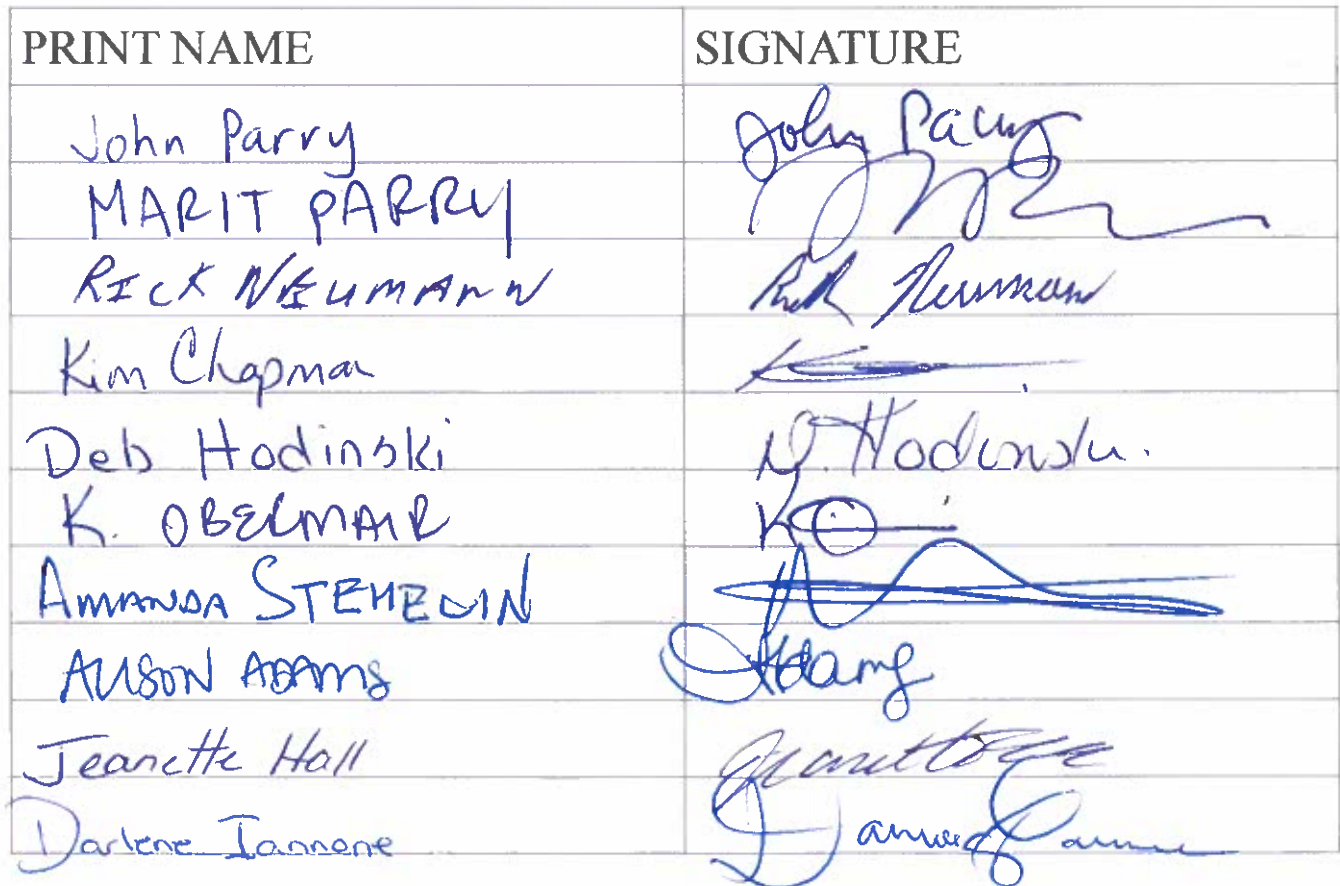 PRINT NAME SIGNATURE
John Parry John Parry
MARIT PARRY
RICK NEUMANN Rick Neumann
Kim Chapman
Deb Hodinski D. Hodinski.
K. OBERMAIR
AMANDA STEHELIN
ALISON ADAMS Adams
Jeanette Hall Jeanette
Darlene Iannone